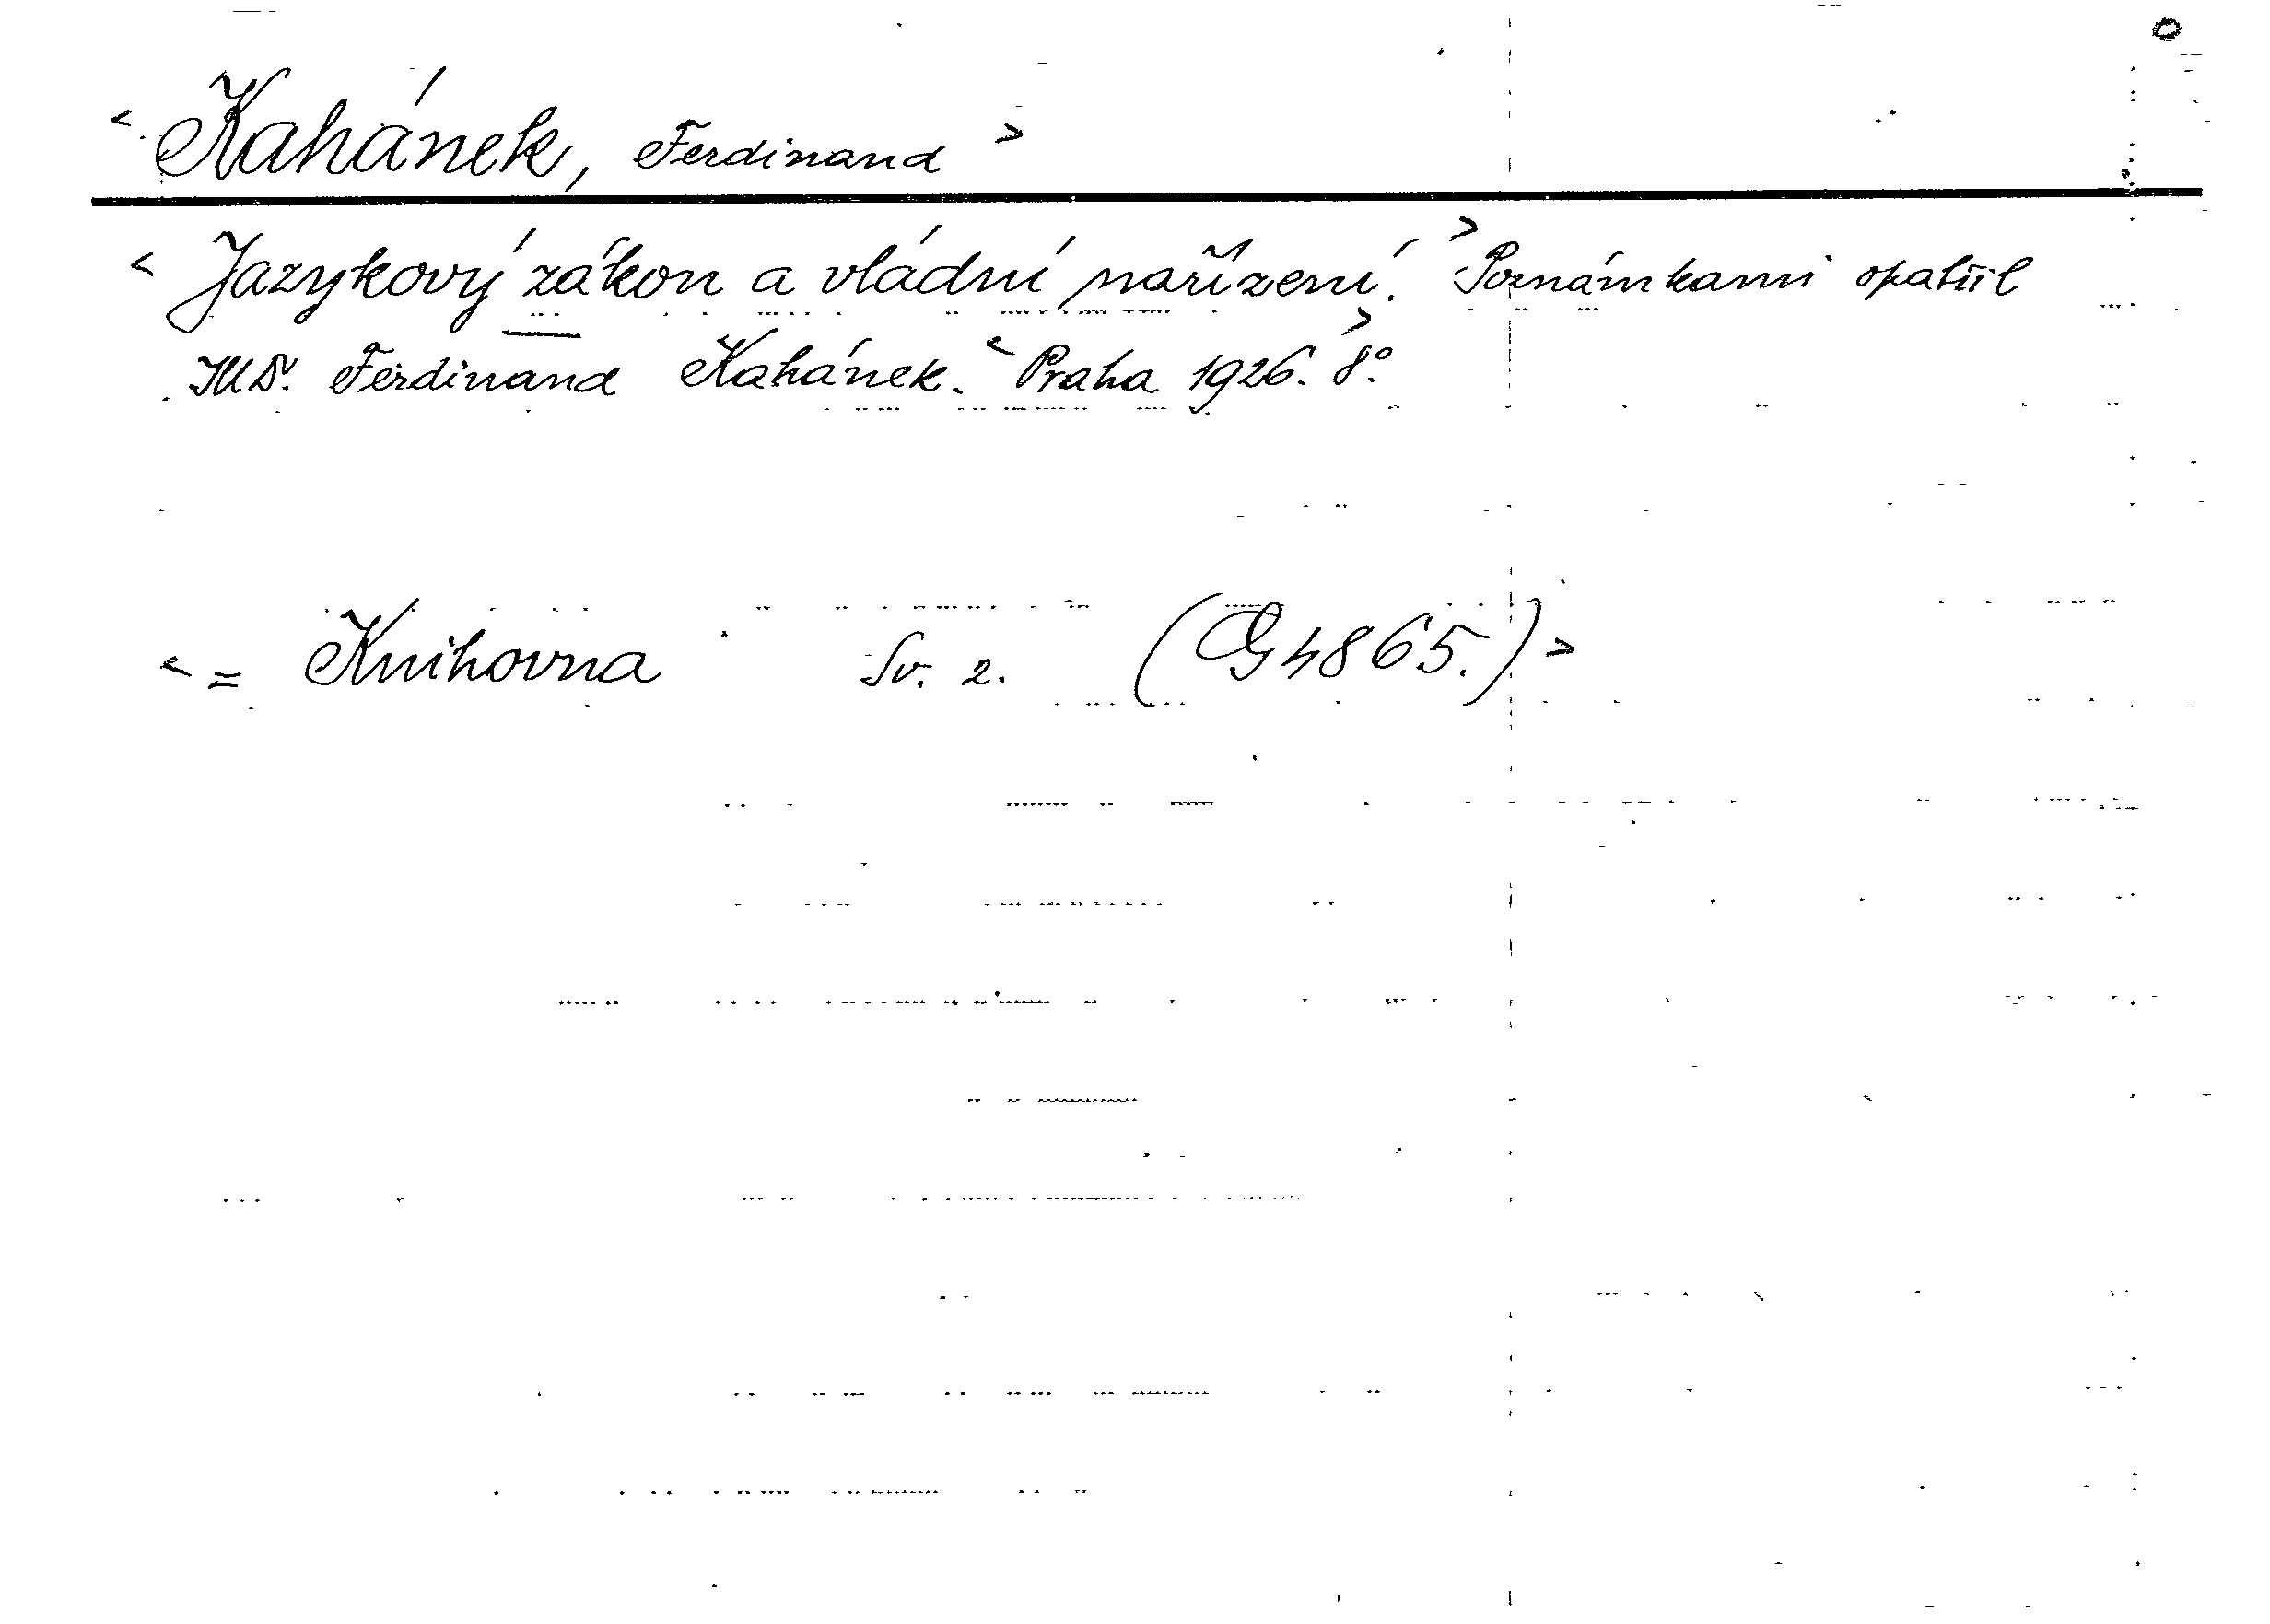 <Kahánek, Ferdinand>
<Jazykový zákon a vládní nařízení.> Poznámkami opatřil
JUDr. Ferdinand Kahánek. <Praha 1926. 8°.>
<= Knihovna Sv. 2. (G 4865.)>